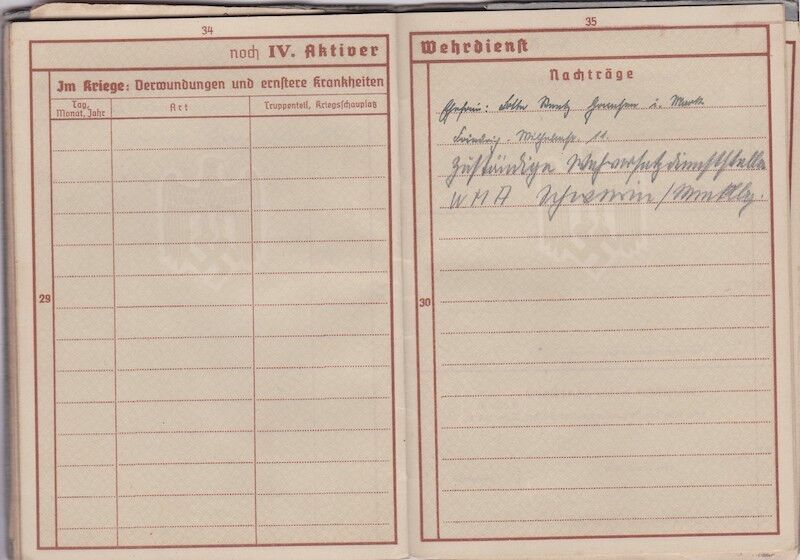 34
noch IV. Aktiver
Im Kriege: Verwundungen und ernstere Krankheiten
Tag, Monat, Jahr
Art
Truppenteil, Kriegsschauplatz
29
35
Wehrdienst
Nachträge
Ehefrau: i. Mark
Friedrich-Wilhelmstr. 11
Zuständige Wehrersatzdienststelle
W M A Schwerin / Mecklbg.
30